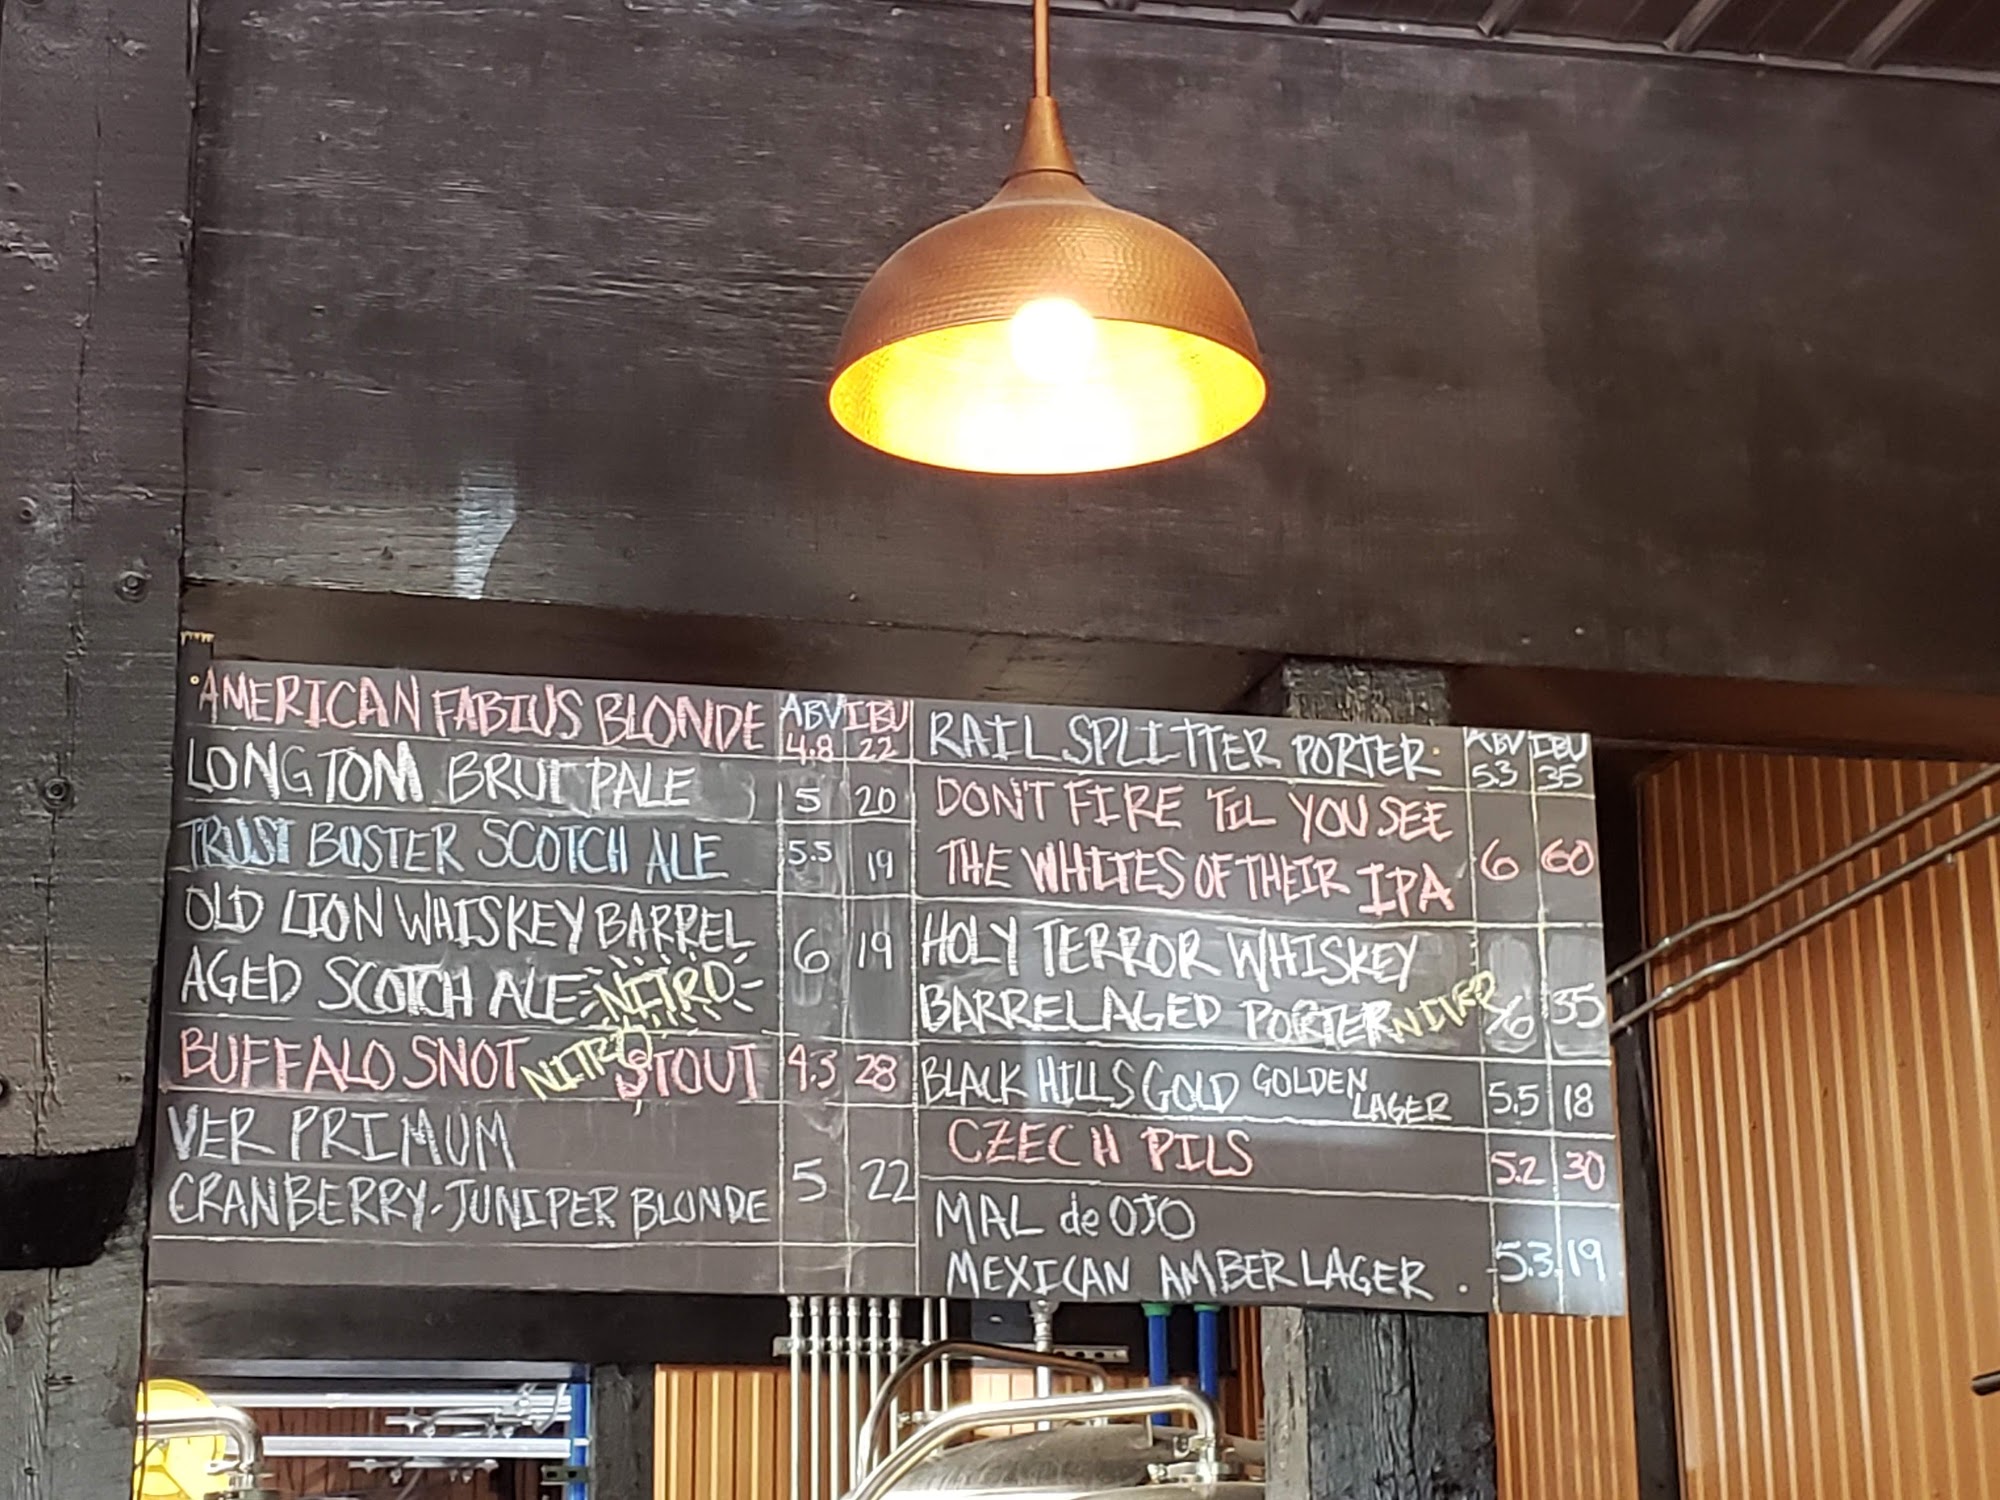 AMERICAN FABIUS BLONDE ABV IBU
4.8 22
LONG TOM BRUT PALE 5 20
TRUST BUSTER SCOTCH ALE 5.5 19
OLD LION WHISKEY BARREL
AGED SCOTCH ALE NITRO 6 19
BUFFALO SNOT NITRO STOUT 4.5 28
VER PRIMUM
CRANBERRY-JUNIPER BLONDE 5 22
RAIL SPLITTER PORTER ABV IBU
5.3 35
DON'T FIRE 'TIL YOU SEE
THE WHITES OF THEIR IPA 6 60
HOLY TERROR WHISKEY
BARREL AGED PORTER NITRO 6 35
BLACK HILLS GOLD GOLDEN LAGER 5.5 18
CZECH PILS 5.2 30
MAL de OJO
MEXICAN AMBER LAGER 5.3 19